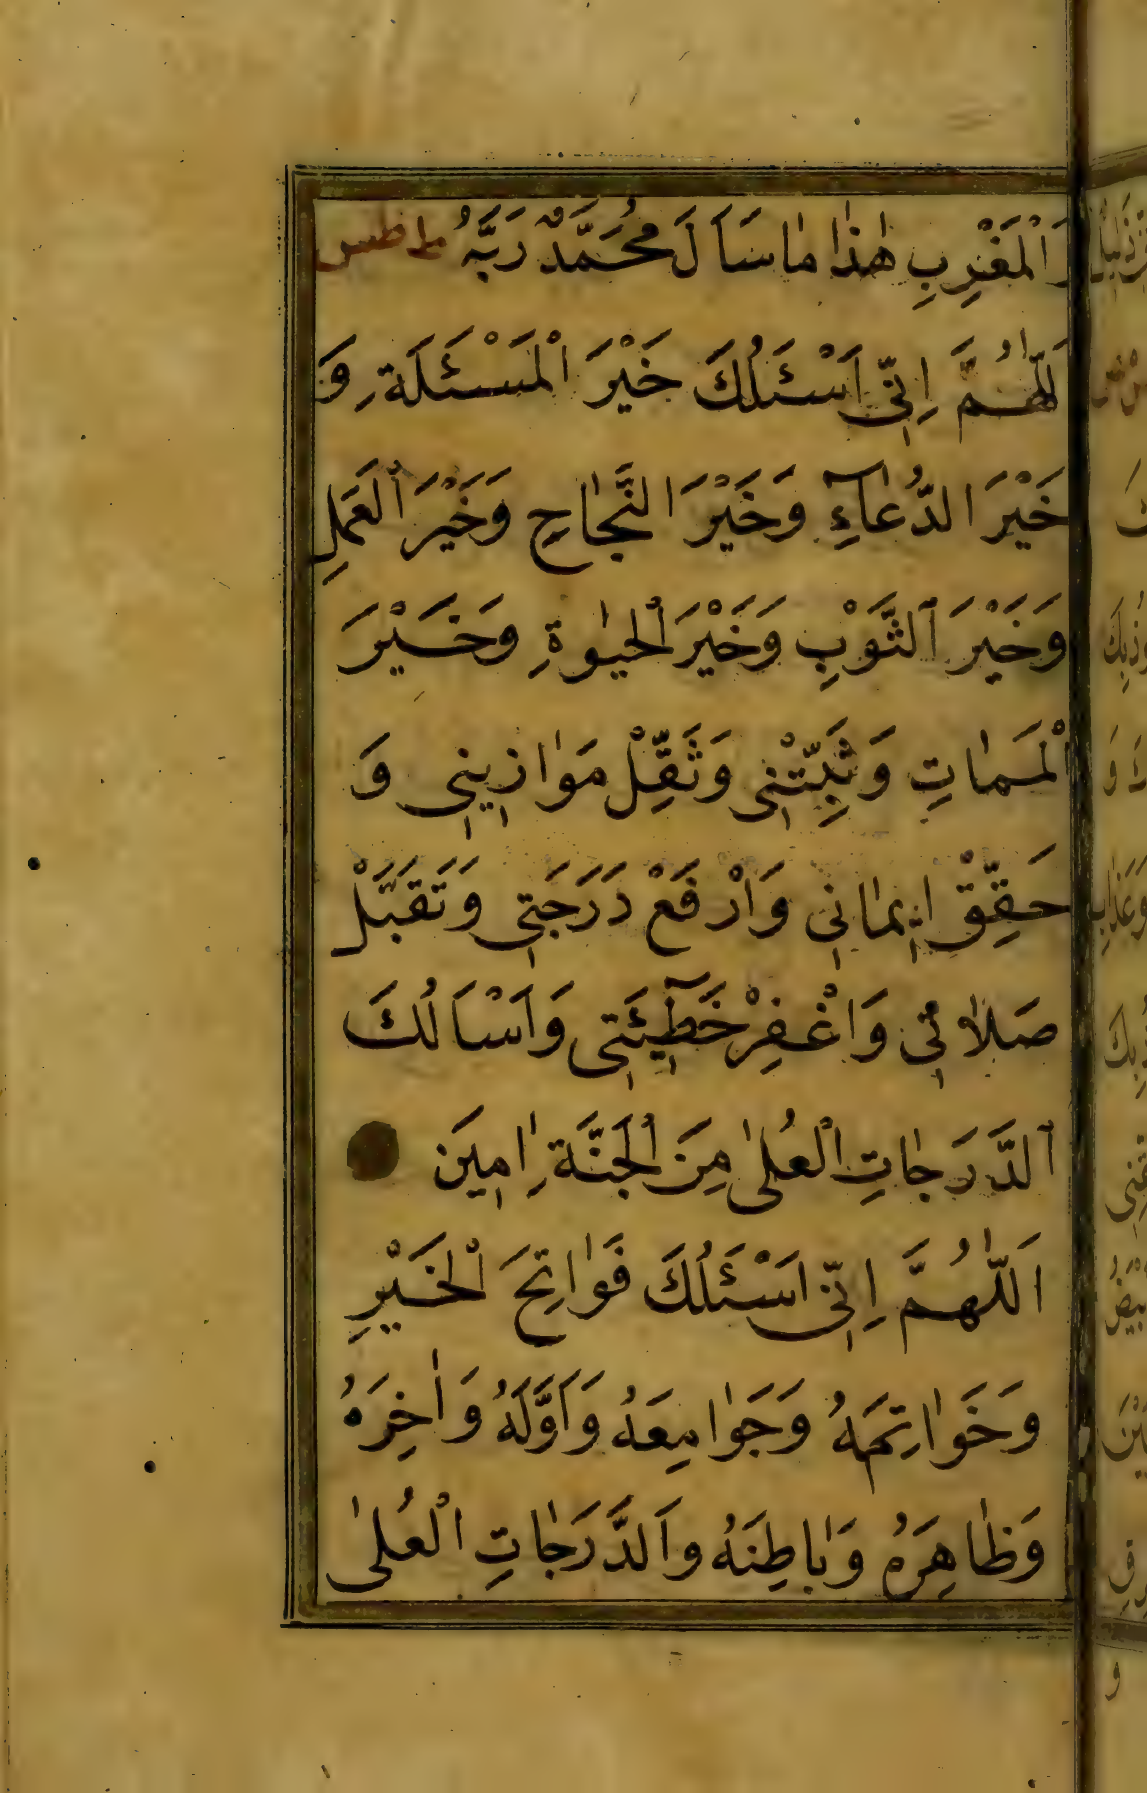 وَالْمَغْرِبِ هٰذَا مَا سَاَلَ مُحَمَّدٌ رَبَّهُ
اَللّٰهُمَّ اِنِّي اَسْئَلُكَ خَيْرَ الْمَسْئَلَةِ وَ
خَيْرَ الدُّعَآءِ وَخَيْرَ النَّجَاحِ وَخَيْرَ الْعَمَلِ
وَخَيْرَ الثَّوْبِ وَخَيْرَ الْحَيٰوةِ وَخَيْرَ
الْمَمَاتِ وَثَبِّتْنِي وَثَقِّلْ مَوَازِينِي وَ
حَقِّقْ اِيمَانِي وَارْفَعْ دَرَجَتِي وَتَقَبَّلْ
صَلَاتِي وَاغْفِرْ خَطِيٓئَتِي وَاَسْاَلُكَ
الدَّرَجَاتِ الْعُلٰى مِنَ الْجَنَّةِ اٰمِينَ
اَللّٰهُمَّ اِنِّي اَسْئَلُكَ فَوَاتِحَ الْخَيْرِ
وَخَوَاتِمَهُ وَجَوَامِعَهُ وَاَوَّلَهُ وَاٰخِرَهُ
وَظَاهِرَهُ وَبَاطِنَهُ وَالدَّرَجَاتِ الْعُلٰى